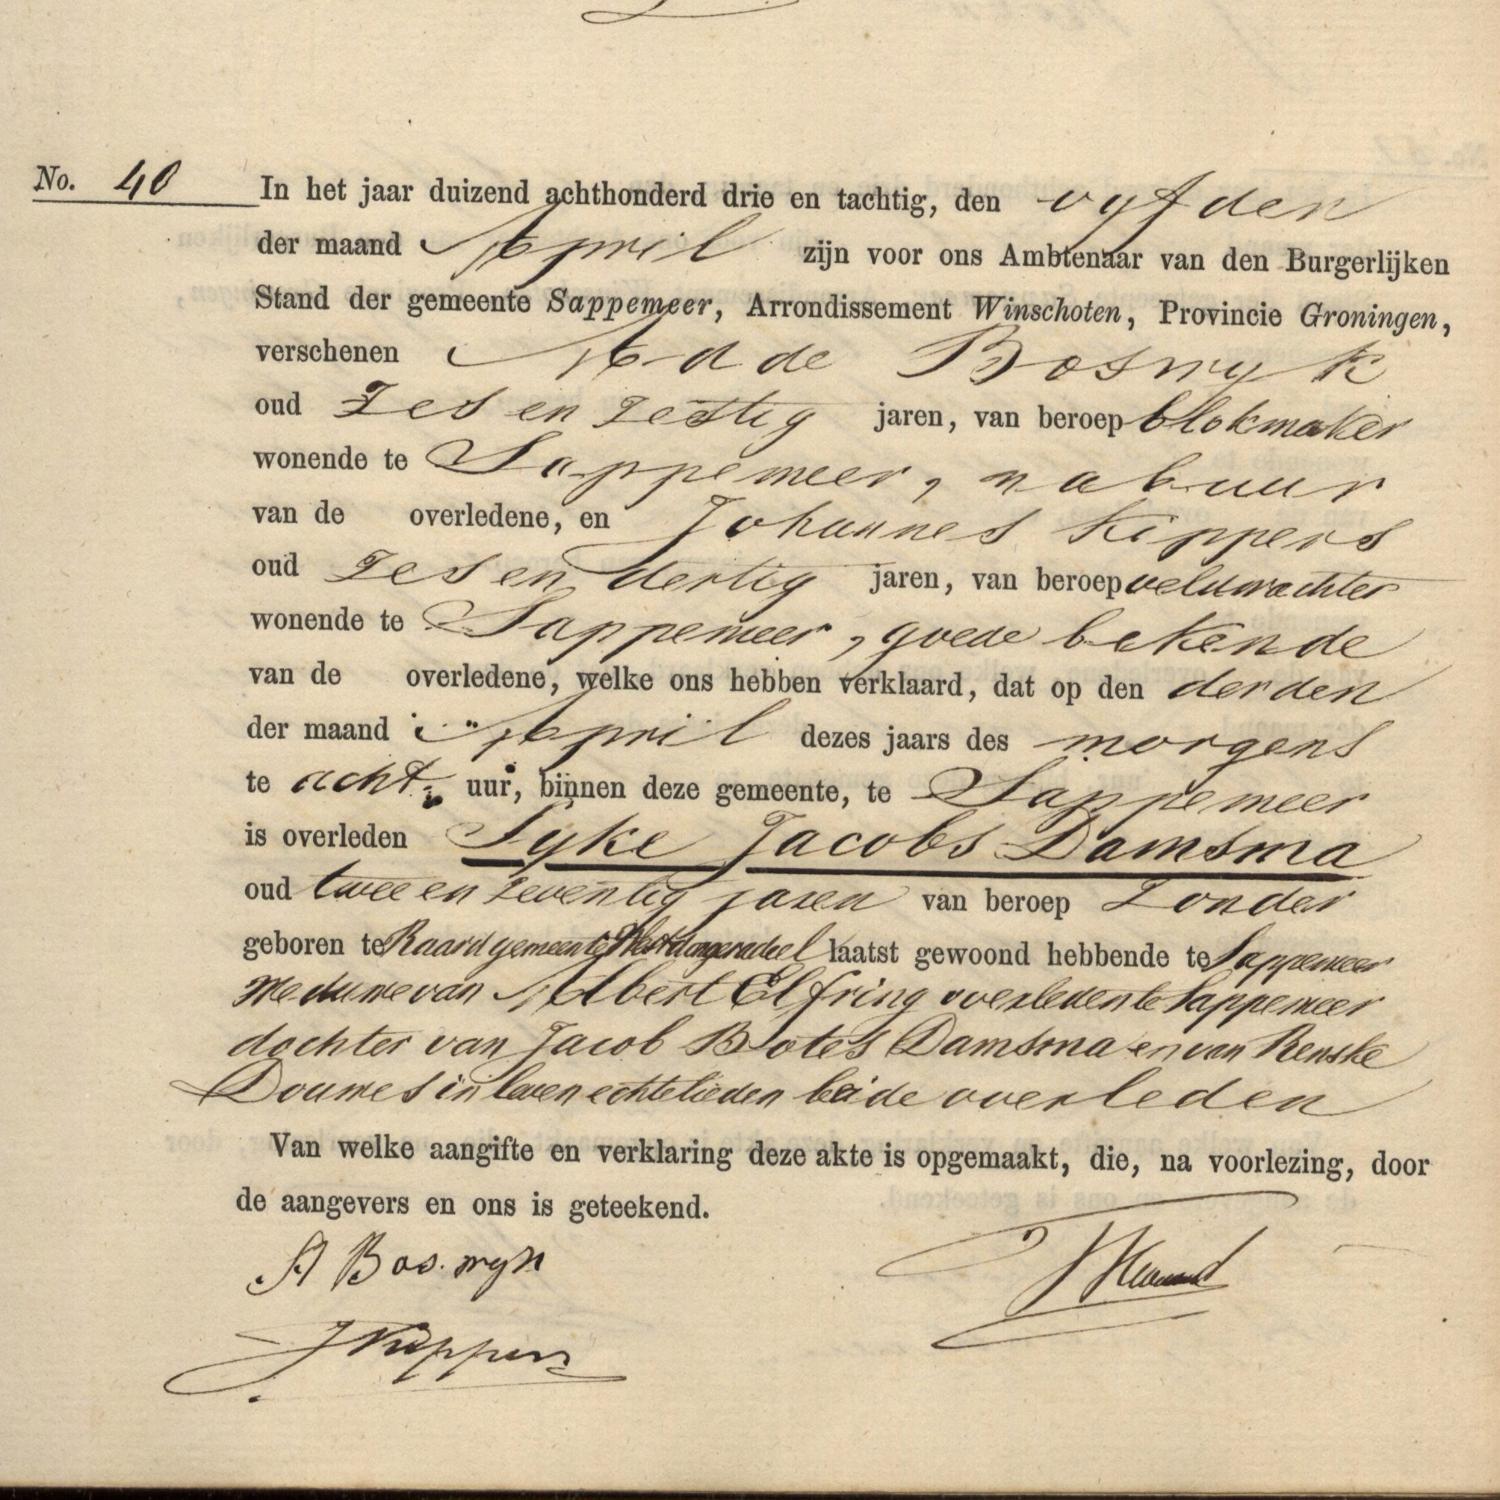 No. 40 In het jaar duizend achthonderd drie en tachtig, den vyfden
der maand April zijn voor ons Ambtenaar van den Burgerlijken
Stand der gemeente Sappemeer, Arrondissement Winschoten, Provincie Groningen,
verschenen Adde Boswyk
oud zes en zestig jaren, van beroep blokmaker
wonende te Sappemeer, nabuur
van de overledene, en Johannes Kippers
oud zes en dertig jaren, van beroep veldwachter
wonende te Sappemeer, goede bekende
van de overledene, welke ons hebben verklaard, dat op den derden
der maand April dezes jaars des morgens
te acht uur, binnen deze gemeente, te Sappemeer
is overleden Syke Jacobs Damsma
oud twee en zeventig jaren van beroep zonder
geboren te Raard gemeente Westdongeradeel laatst gewoond hebbende te Sappemeer
Weduwe van Albert Elfring overleden te Sappemeer
dochter van Jacob Botes Damsma en van Renske
Douwes in leven echtelieden beide overleden
Van welke aangifte en verklaring deze akte is opgemaakt, die, na voorlezing, door
de aangevers en ons is geteekend.
A Boswyk
J Kippers